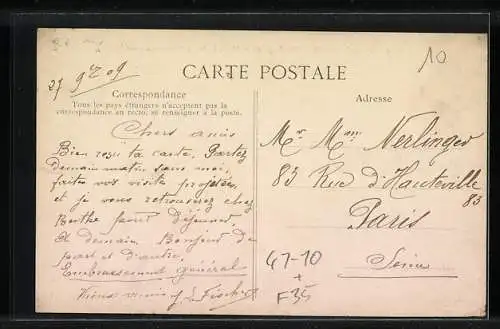 10
27 9bre 09
CARTE POSTALE
Correspondance
Tous les pays étrangers n'acceptent pas la
correspondance au recto, se renseigner à la poste.
Adresse
Chers amis
Bien reçu ta carte, Partez
demain matin sans moi,
faites vos visites projetées,
et je vous retrouverez chez
Berthe pour déjeuner,
Et demain. Bonjour de
part et d'autre,
Embrassement général
Fischer
Mr. Mme Nerlinger
83 Rue d'Hauteville
83
Paris
Seine
47-10
+
F35